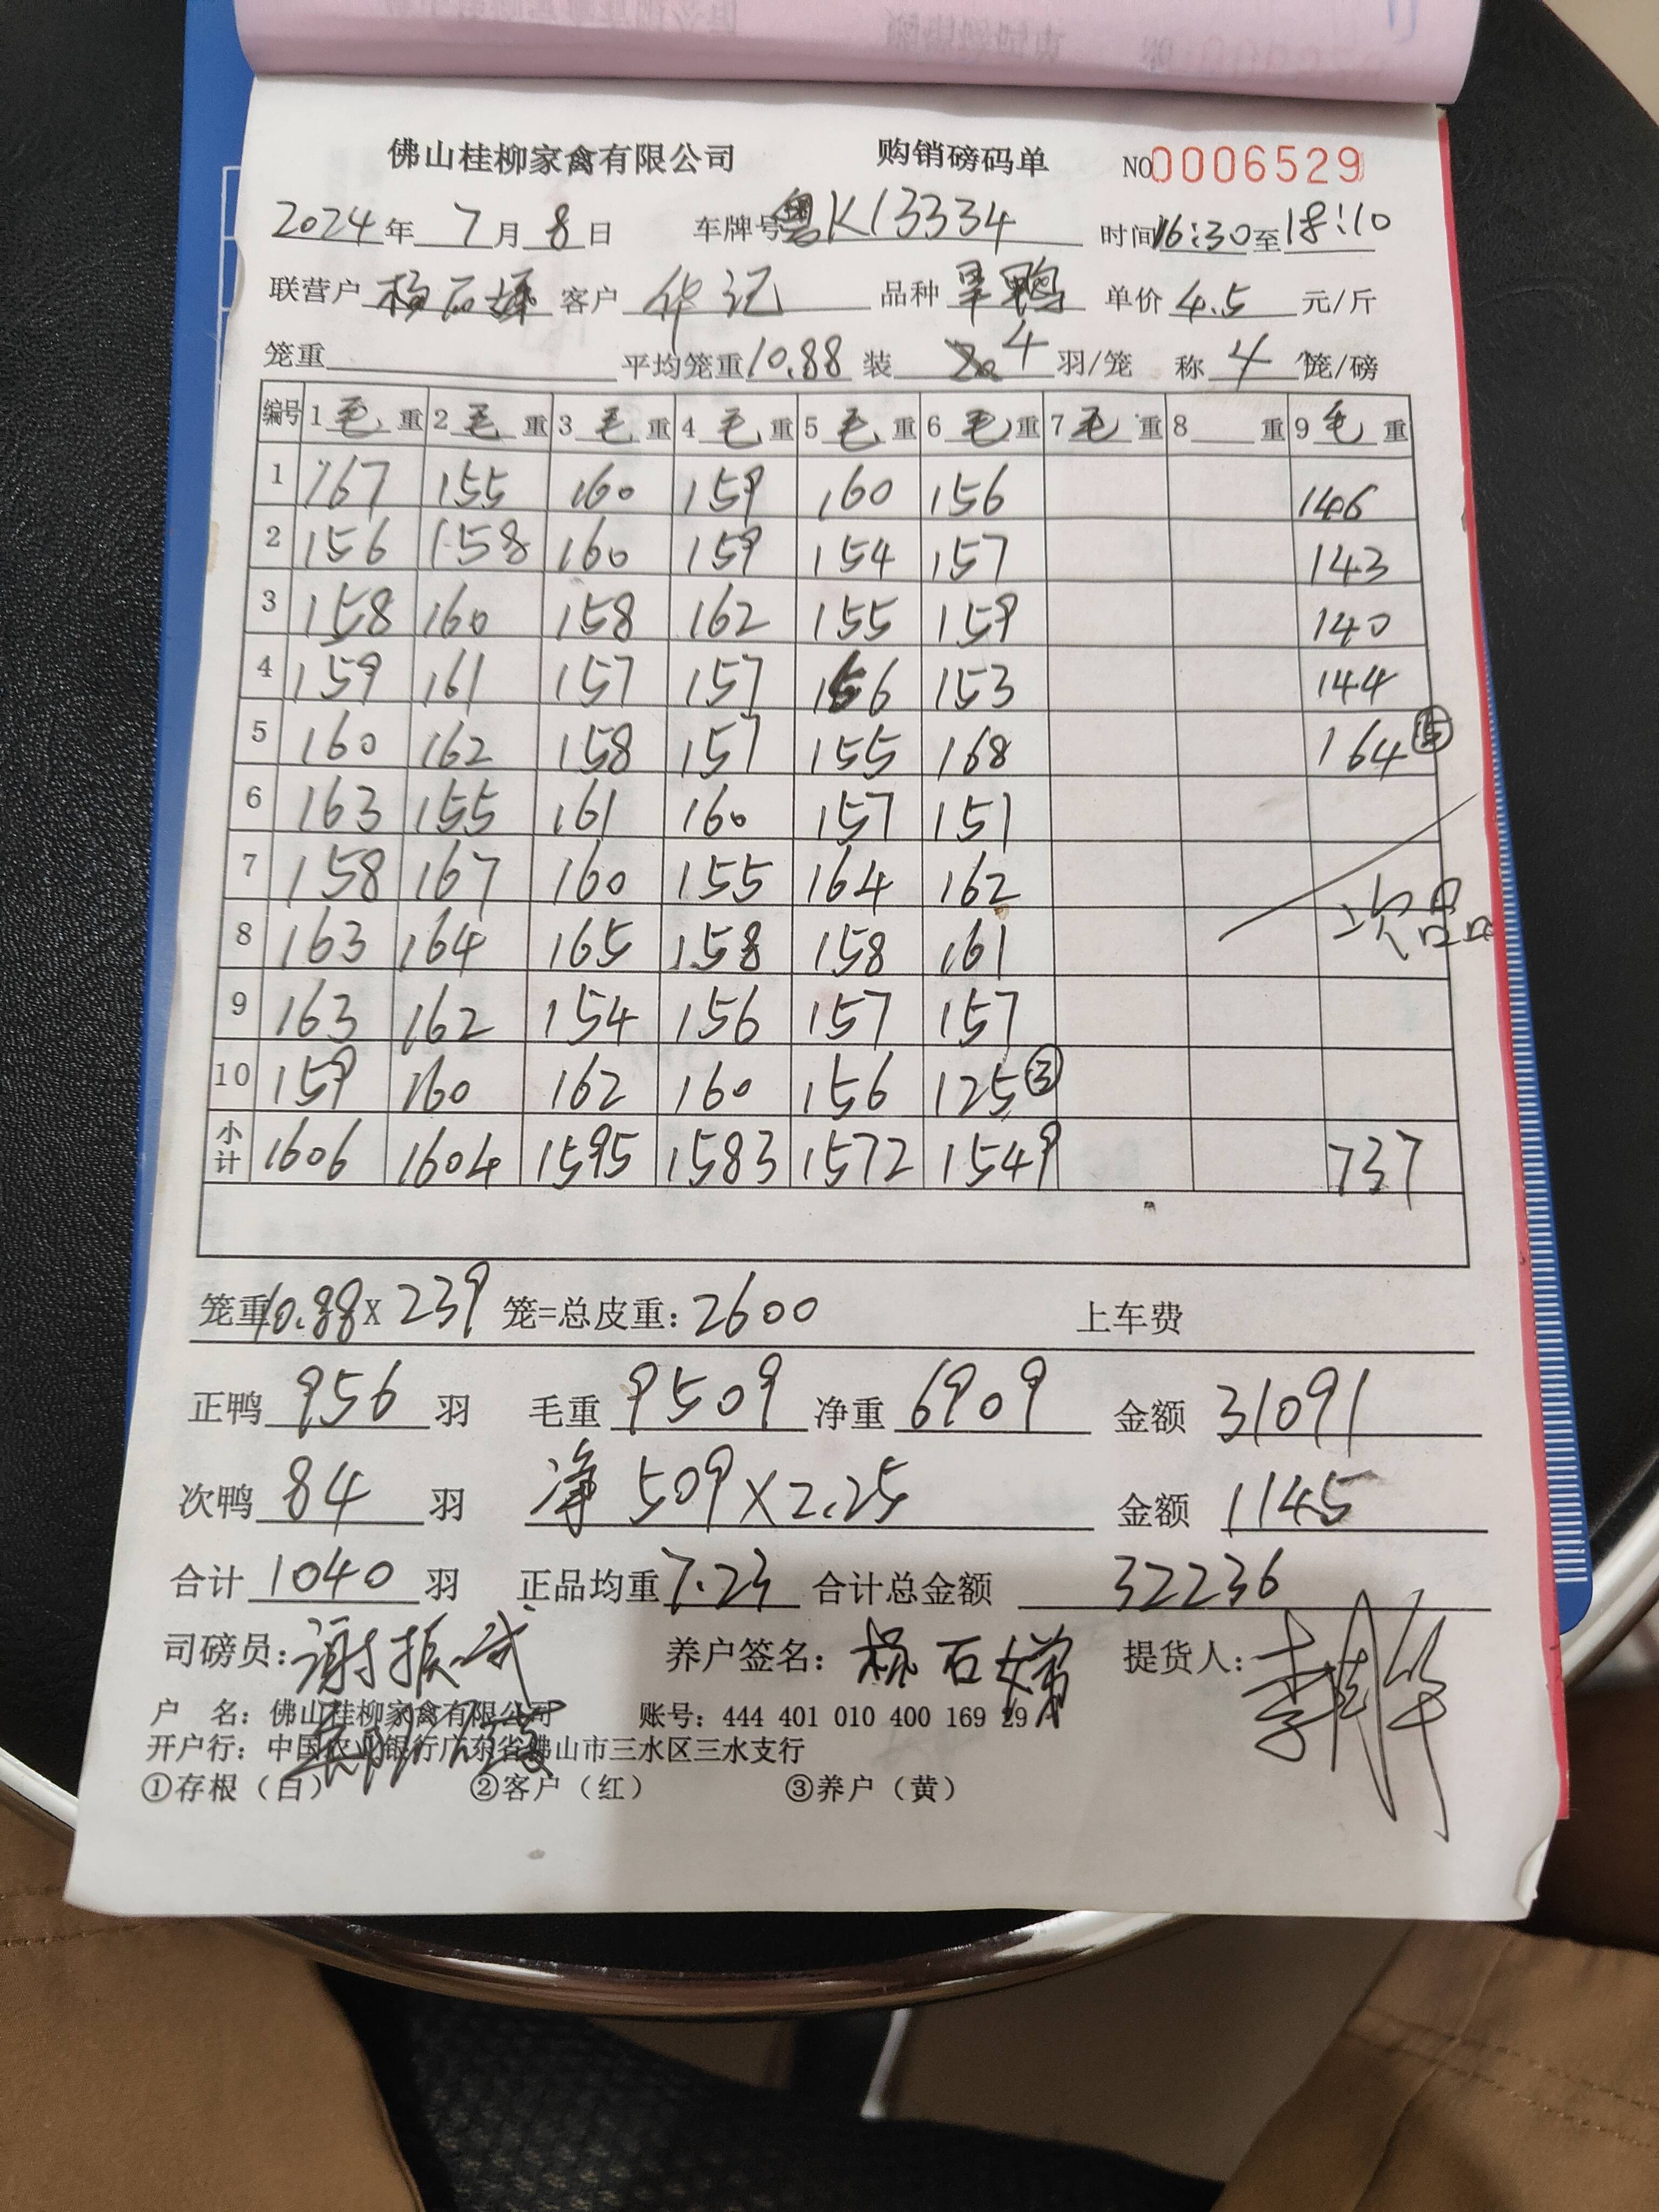 佛山桂柳家禽有限公司 购销磅码单 NO 0006529
2024年 7月 8日 车牌号 粤K13334 时间 16:30 至 18:10
联营户 杨石 客户 华记 品种 旱鸭 单价 4.5 元/斤
笼重 平均笼重 10.88 装 4 羽/笼 称 4 笼/磅
编号 1 毛 重 2 毛 重 3 毛 重 4 毛 重 5 毛 重 6 毛 重 7 毛 重 8 重 9 毛 重
1 167 155 160 159 160 156 146
2 156 158 160 159 154 157 143
3 158 160 158 162 155 159 140
4 159 161 157 157 156 153 144
5 160 162 158 157 155 168 164 ⑤
6 163 155 161 160 157 151
7 158 167 160 155 164 162
8 163 164 165 158 158 161 次品
9 163 162 154 156 157 157
10 159 160 162 160 156 125 ③
小计 1606 1604 1595 1583 1572 1549 737
笼重 10.88 X 239 笼=总皮重: 2600 上车费
正鸭 956 羽 毛重 9509 净重 6909 金额 31091
次鸭 84 羽 净 509 X 2.25 金额 1145
合计 1040 羽 正品均重 7.23 合计总金额 32236
司磅员: 谢振武 养户签名: 杨石娣 提货人: 李
户 名: 佛山桂柳家禽有限公司 账号: 444 401 010 400 169 29
开户行: 中国农业银行广东省佛山市三水区三水支行
①存根（白） ②客户（红） ③养户（黄）